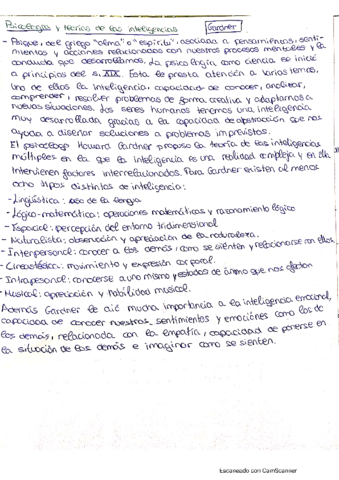 Psicología y teorías de las inteligencias Gardner
- Psique, del griego "alma" o "espíritu", asociada a pensamientos, senti-
mientos y acciones relacionados con nuestros procesos mentales y la
conducta que desarrollamos. La psicología como ciencia se inició
a principios del s. XIX. Esta le presta atención a varios temas,
uno de ellos la inteligencia, capacidad de conocer, analizar,
comprender, resolver problemas de forma creativa y adaptarnos a
nuevas situaciones. Los seres humanos tenemos una inteligencia
muy desarrollada gracias a la capacidad de abstracción que nos
ayuda a diseñar soluciones a problemas imprevistos.
El psicólogo Howard Gardner propuso la teoría de las inteligencias
múltiples en la que la inteligencia es una realidad compleja y en ella
intervienen factores interrelacionados. Para Gardner existen al menos
ocho tipos distintos de inteligencia:
- Lingüística: uso de la lengua
- Lógico-matemática: operaciones matemáticas y razonamiento lógico
- Espacial: percepción del entorno tridimensional
- Naturalista: observación y apreciación de la naturaleza.
- Interpersonal: conocer a los demás, como se sienten y relacionarse con ellos.
- Cinestésica: movimiento y expresión corporal.
- Intrapersonal: conocerse a uno mismo y estados de ánimo que nos afectan
- Musical: apreciación y habilidad musical.
Además Gardner le dió mucha importancia a la inteligencia emocional,
capacidad de conocer nuestros sentimientos y emociones como los de
los demás, relacionada con la empatía, capacidad de ponerse en
la situación de los demás e imaginar como se sienten.
Escaneado con CamScanner